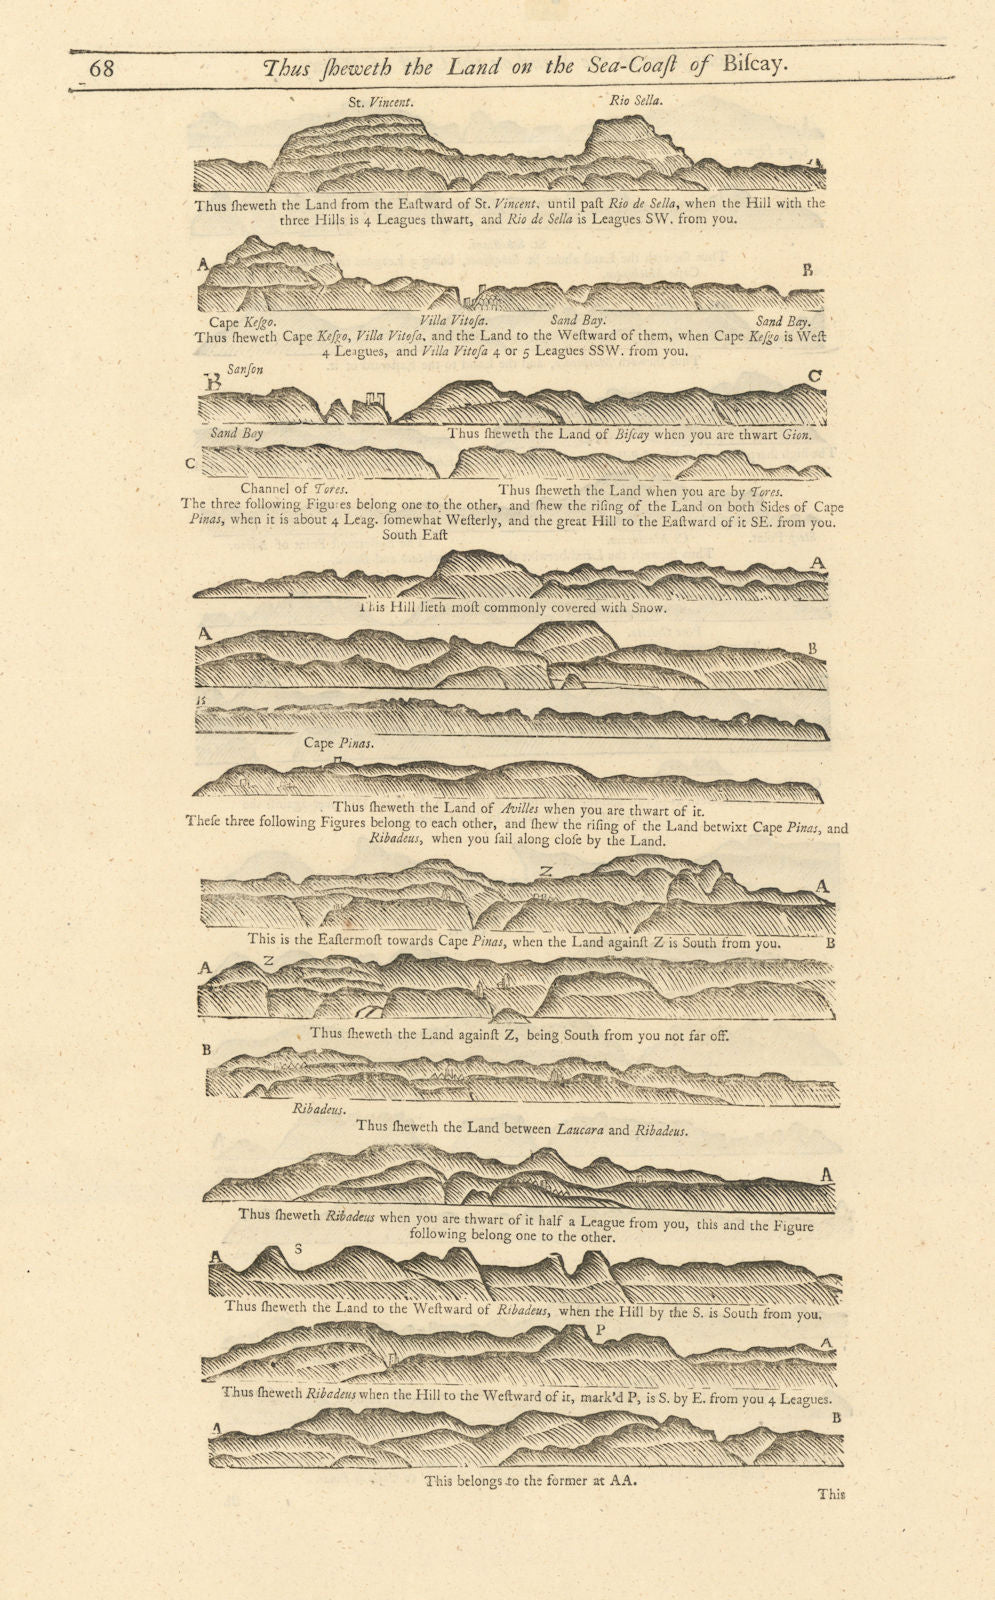 68 Thus ſheweth the Land on the Sea-Coaſt of Biſcay.
St. Vincent. Rio Sella.
Thus ſheweth the Land from the Eaſtward of St. Vincent, until paſt Rio de Sella, when the Hill with the
three Hills is 4 Leagues thwart, and Rio de Sella is Leagues SW. from you.
A B
Cape Keſgo. Villa Vitoſa. Sand Bay. Sand Bay.
Thus ſheweth Cape Keſgo, Villa Vitoſa, and the Land to the Weſtward of them, when Cape Keſgo is Weſt
4 Leagues, and Villa Vitoſa 4 or 5 Leagues SSW. from you.
Sanſon
B C
Sand Bay Thus ſheweth the Land of Biſcay when you are thwart Gion.
C
Channel of Tores. Thus ſheweth the Land when you are by Tores.
The three following Figures belong one to the other, and ſhew the riſing of the Land on both Sides of Cape
Pinas, when it is about 4 Leag. ſomewhat Weſterly, and the great Hill to the Eaſtward of it SE. from you.
South Eaſt
A
This Hill lieth moſt commonly covered with Snow.
A B
B
Cape Pinas.
Thus ſheweth the Land of Avilles when you are thwart of it.
Theſe three following Figures belong to each other, and ſhew the riſing of the Land betwixt Cape Pinas, and
Ribadeus, when you ſail along cloſe by the Land.
Z A
This is the Eaſtermoſt towards Cape Pinas, when the Land againſt Z is South from you. B
A Z
Thus ſheweth the Land againſt Z, being South from you not far off.
B
Ribadeus.
Thus ſheweth the Land between Laucara and Ribadeus.
A
Thus ſheweth Ribadeus when you are thwart of it half a League from you, this and the Figure
following belong one to the other.
A S
Thus ſheweth the Land to the Weſtward of Ribadeus, when the Hill by the S. is South from you.
P A
Thus ſheweth Ribadeus when the Hill to the Weſtward of it, mark'd P, is S. by E. from you 4 Leagues.
A B
This belongs to the former at AA.
This